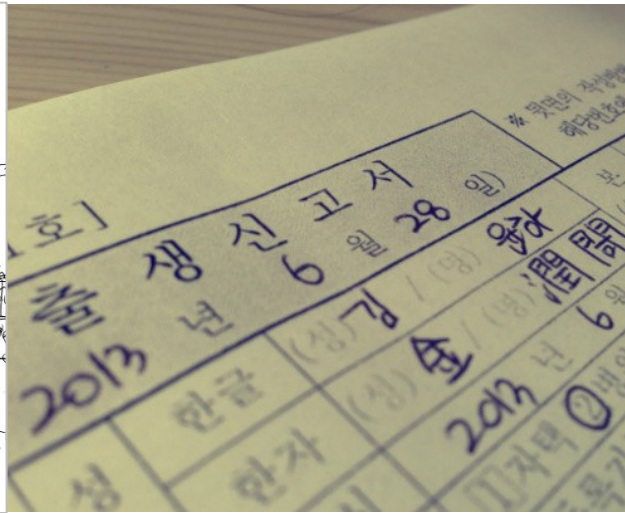 호]
※ 뒷면의 작성방법
해당번호에
출 생 신 고 서
2013 년 6 월 28 일)
성
한글
(성) 김 / (명) 윤하
한자
(성) 金 / (명) 潤
2013 년 6 월
[1]자택 ②병